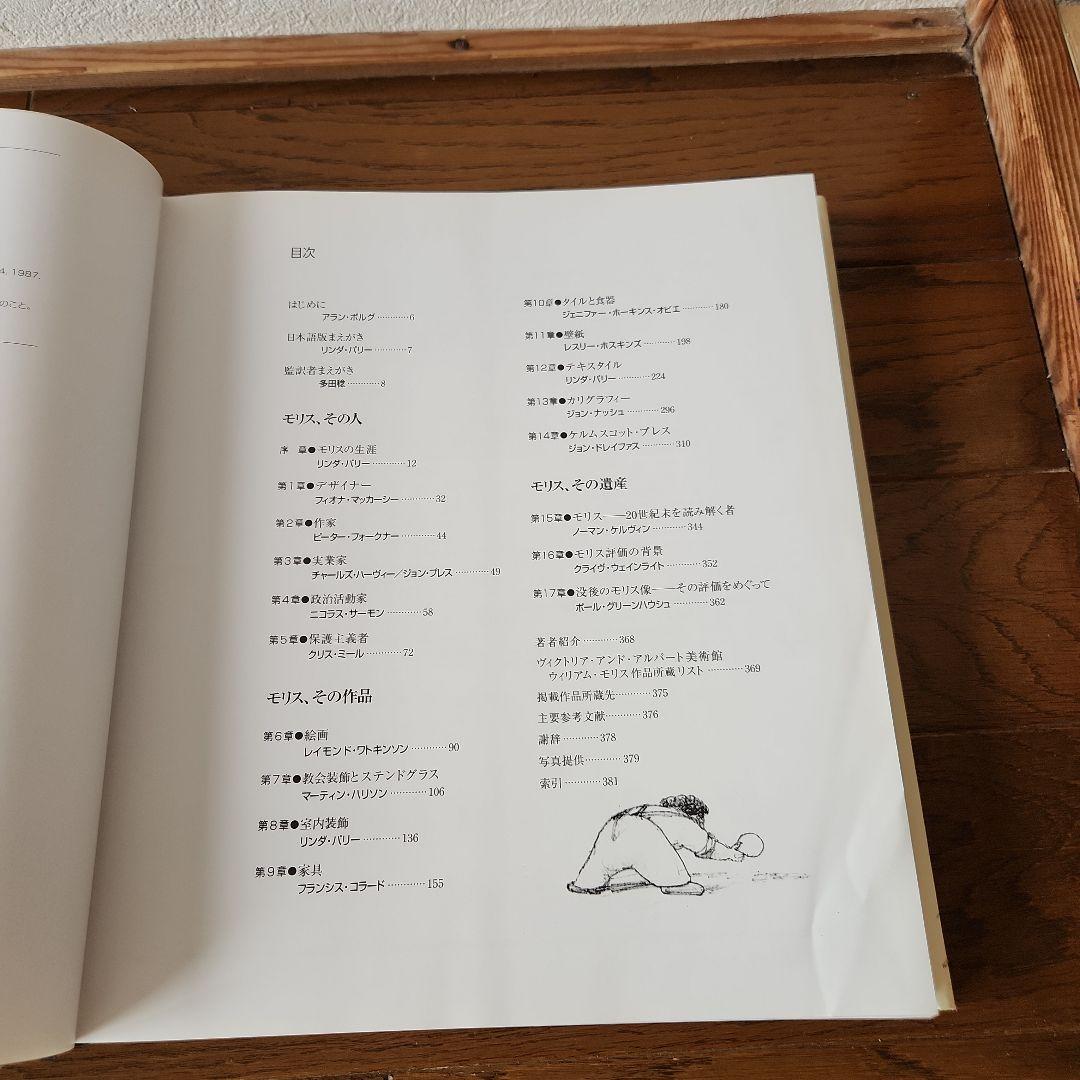 4, 1987.
のこと。
目次
はじめに
アラン・ボルグ…………6
日本語版まえがき
リンダ・パリー…………7
監訳者まえがき
多田稔…………8
モリス、その人
序 章●モリスの生涯
リンダ・パリー…………12
第1章●デザイナー
フィオナ・マッカーシー…………32
第2章●作家
ピーター・フォークナー…………44
第3章●実業家
チャールズ・ハーヴィー／ジョン・プレス…………49
第4章●政治活動家
ニコラス・サーモン…………58
第5章●保護主義者
クリス・ミール…………72
モリス、その作品
第6章●絵画
レイモンド・ワトキンソン…………90
第7章●教会装飾とステンドグラス
マーティン・ハリソン…………106
第8章●室内装飾
リンダ・パリー…………136
第9章●家具
フランシス・コラード…………155
第10章●タイルと食器
ジェニファー・ホーキンス・オピエ…………180
第11章●壁紙
レスリー・ホスキンズ…………198
第12章●テキスタイル
リンダ・パリー…………224
第13章●カリグラフィー
ジョン・ナッシュ…………296
第14章●ケルムスコット・プレス
ジョン・ドレイファス…………310
モリス、その遺産
第15章●モリス——20世紀末を読み解く者
ノーマン・ケルヴィン…………344
第16章●モリス評価の背景
クライヴ・ウェインライト…………352
第17章●没後のモリス像——その評価をめぐって
ポール・グリーンハウシュ…………362
著者紹介…………368
ヴィクトリア・アンド・アルバート美術館
ウィリアム・モリス作品所蔵リスト…………369
掲載作品所蔵先…………375
主要参考文献…………376
謝辞…………378
写真提供…………379
索引…………381